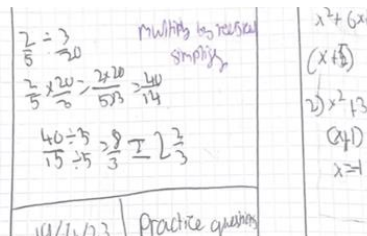 2/5 ÷ 3/20
Multiply by
simplify
2/5 × 20/3 = 2×20/5×3 = 40/14
40÷5/15÷5 = 8/3 = 2 2/3
Practice questions
x²+6x
2) x²+3
(x+1)
x=-1